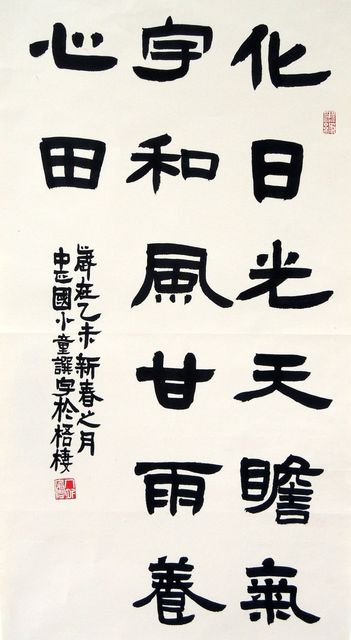 化日光天瞻氣
宇和風甘雨養
心田
歲在乙未新春之月
中正國小童譔字於梧棲